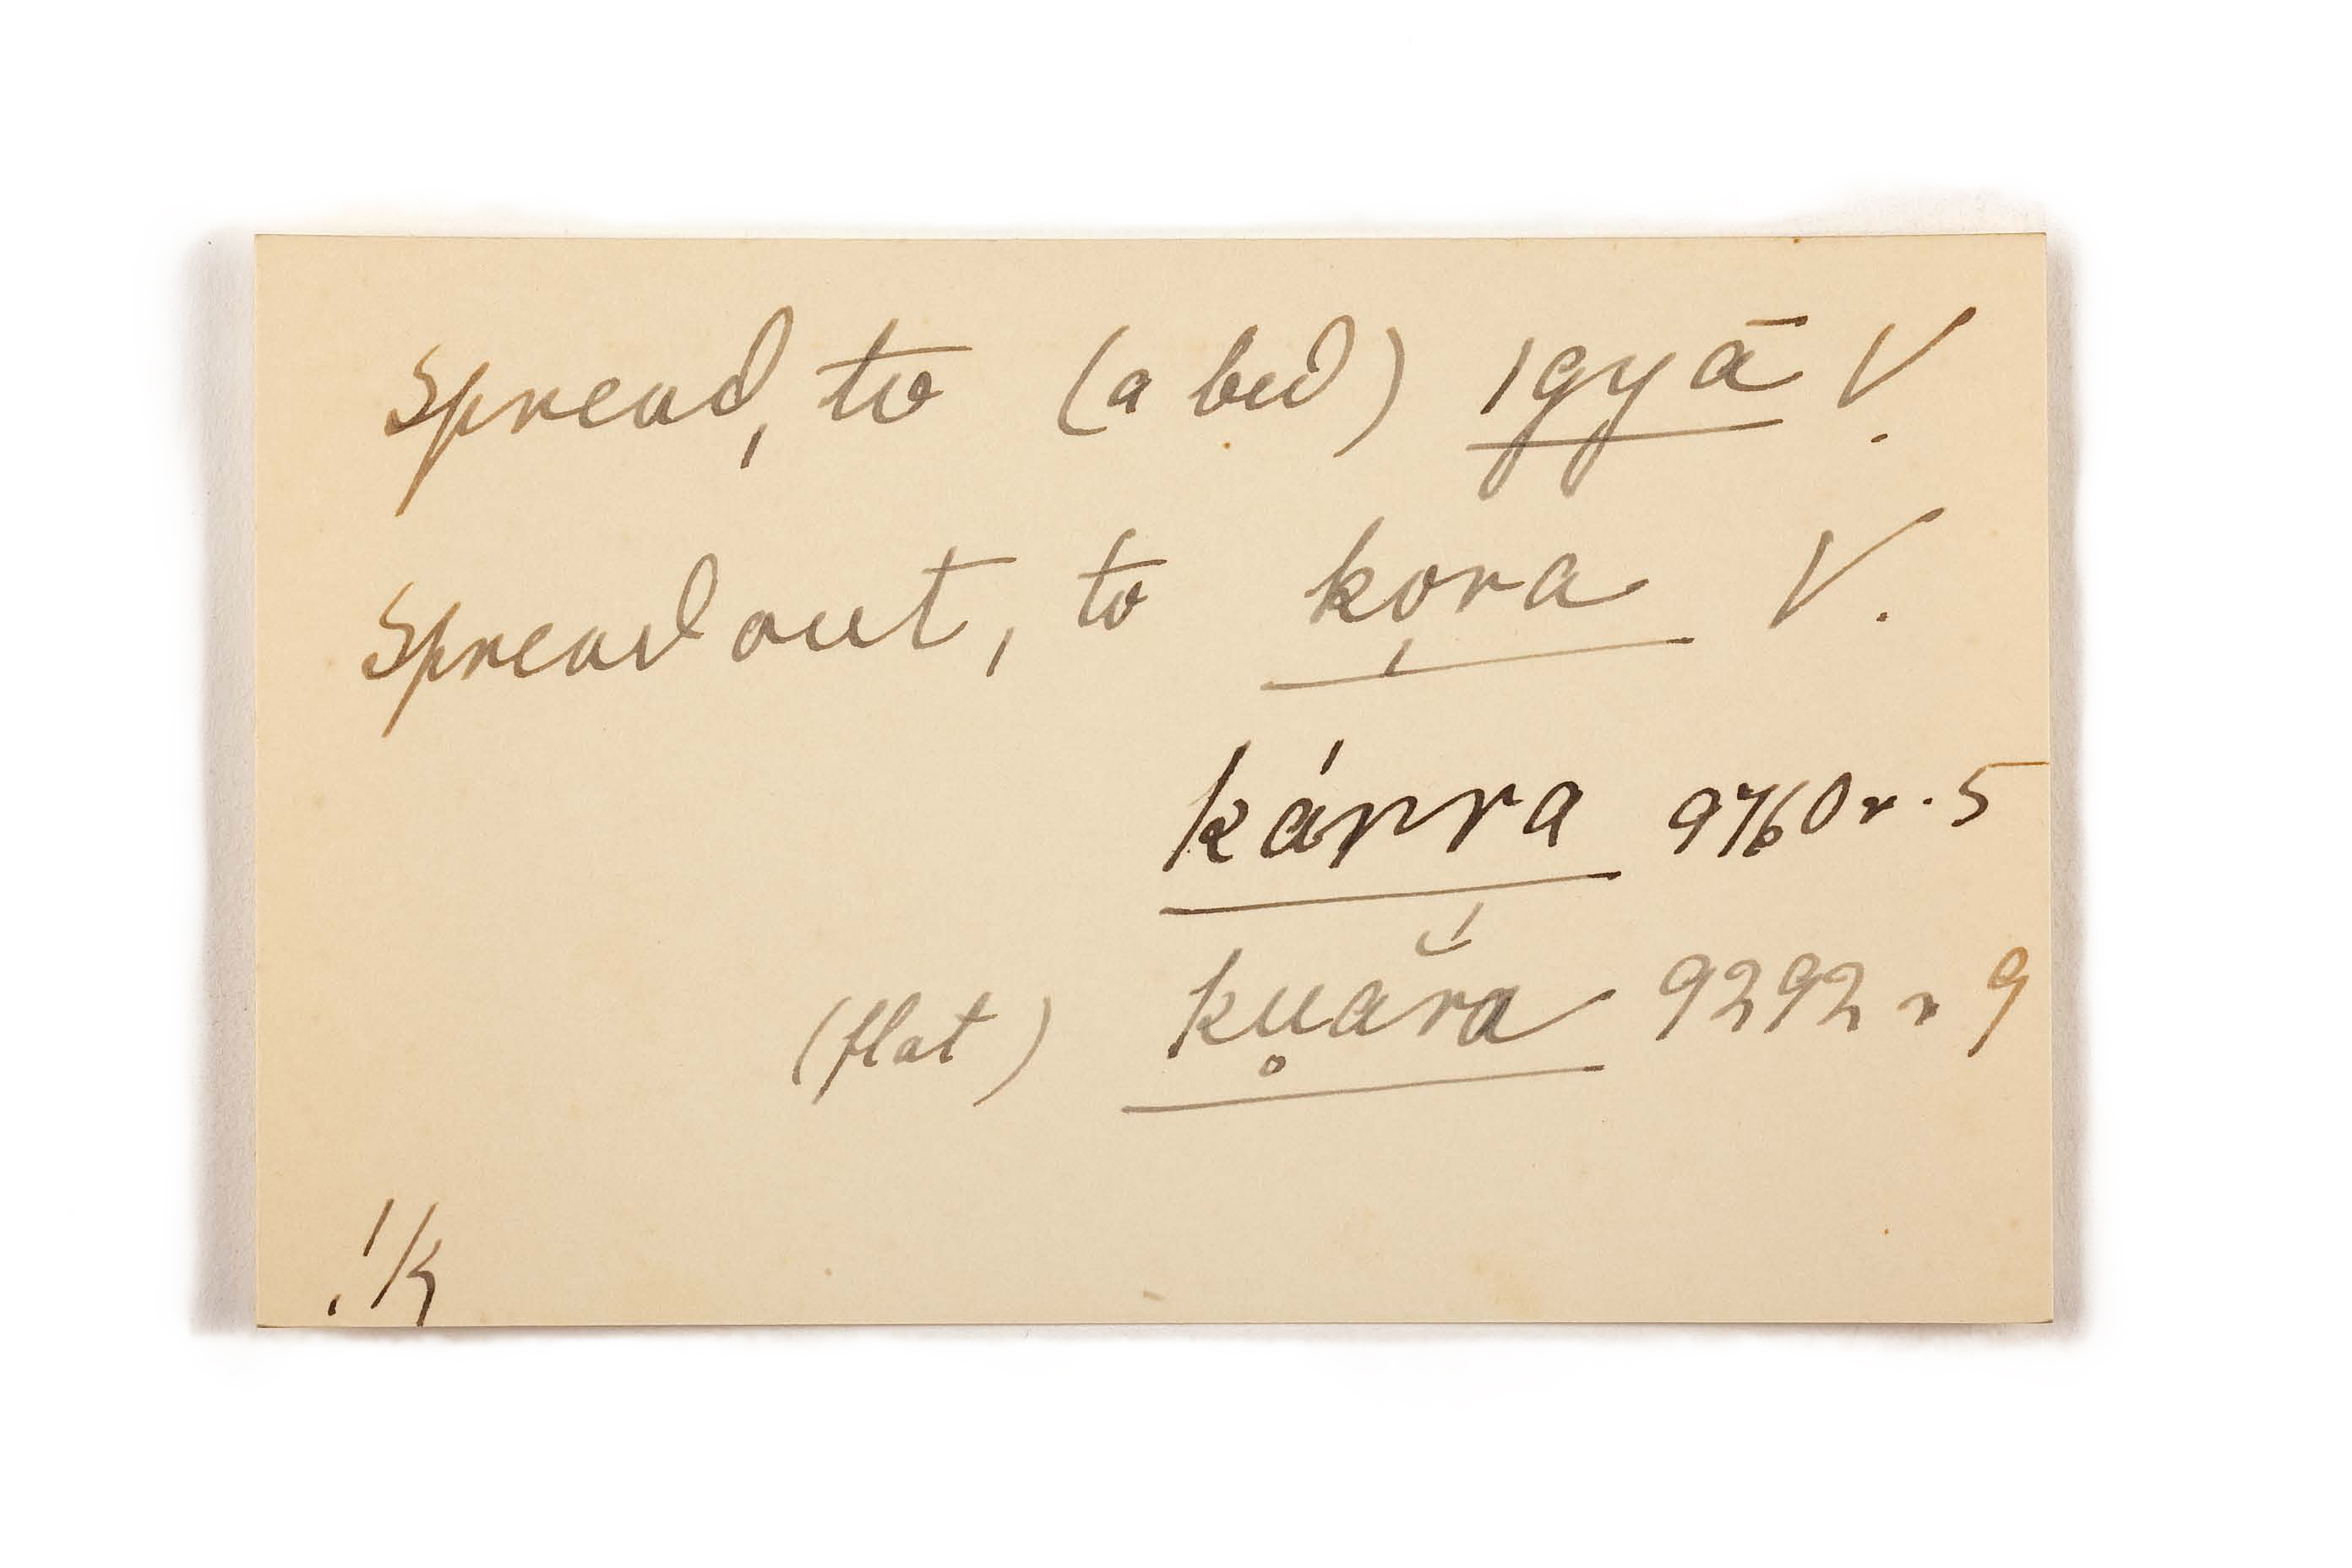 Spread, to (a bed) ıgyā V.
Spread out, to ko̩ra V.
kárra 9760r.5
(flat) ku̥ắra 9292r9